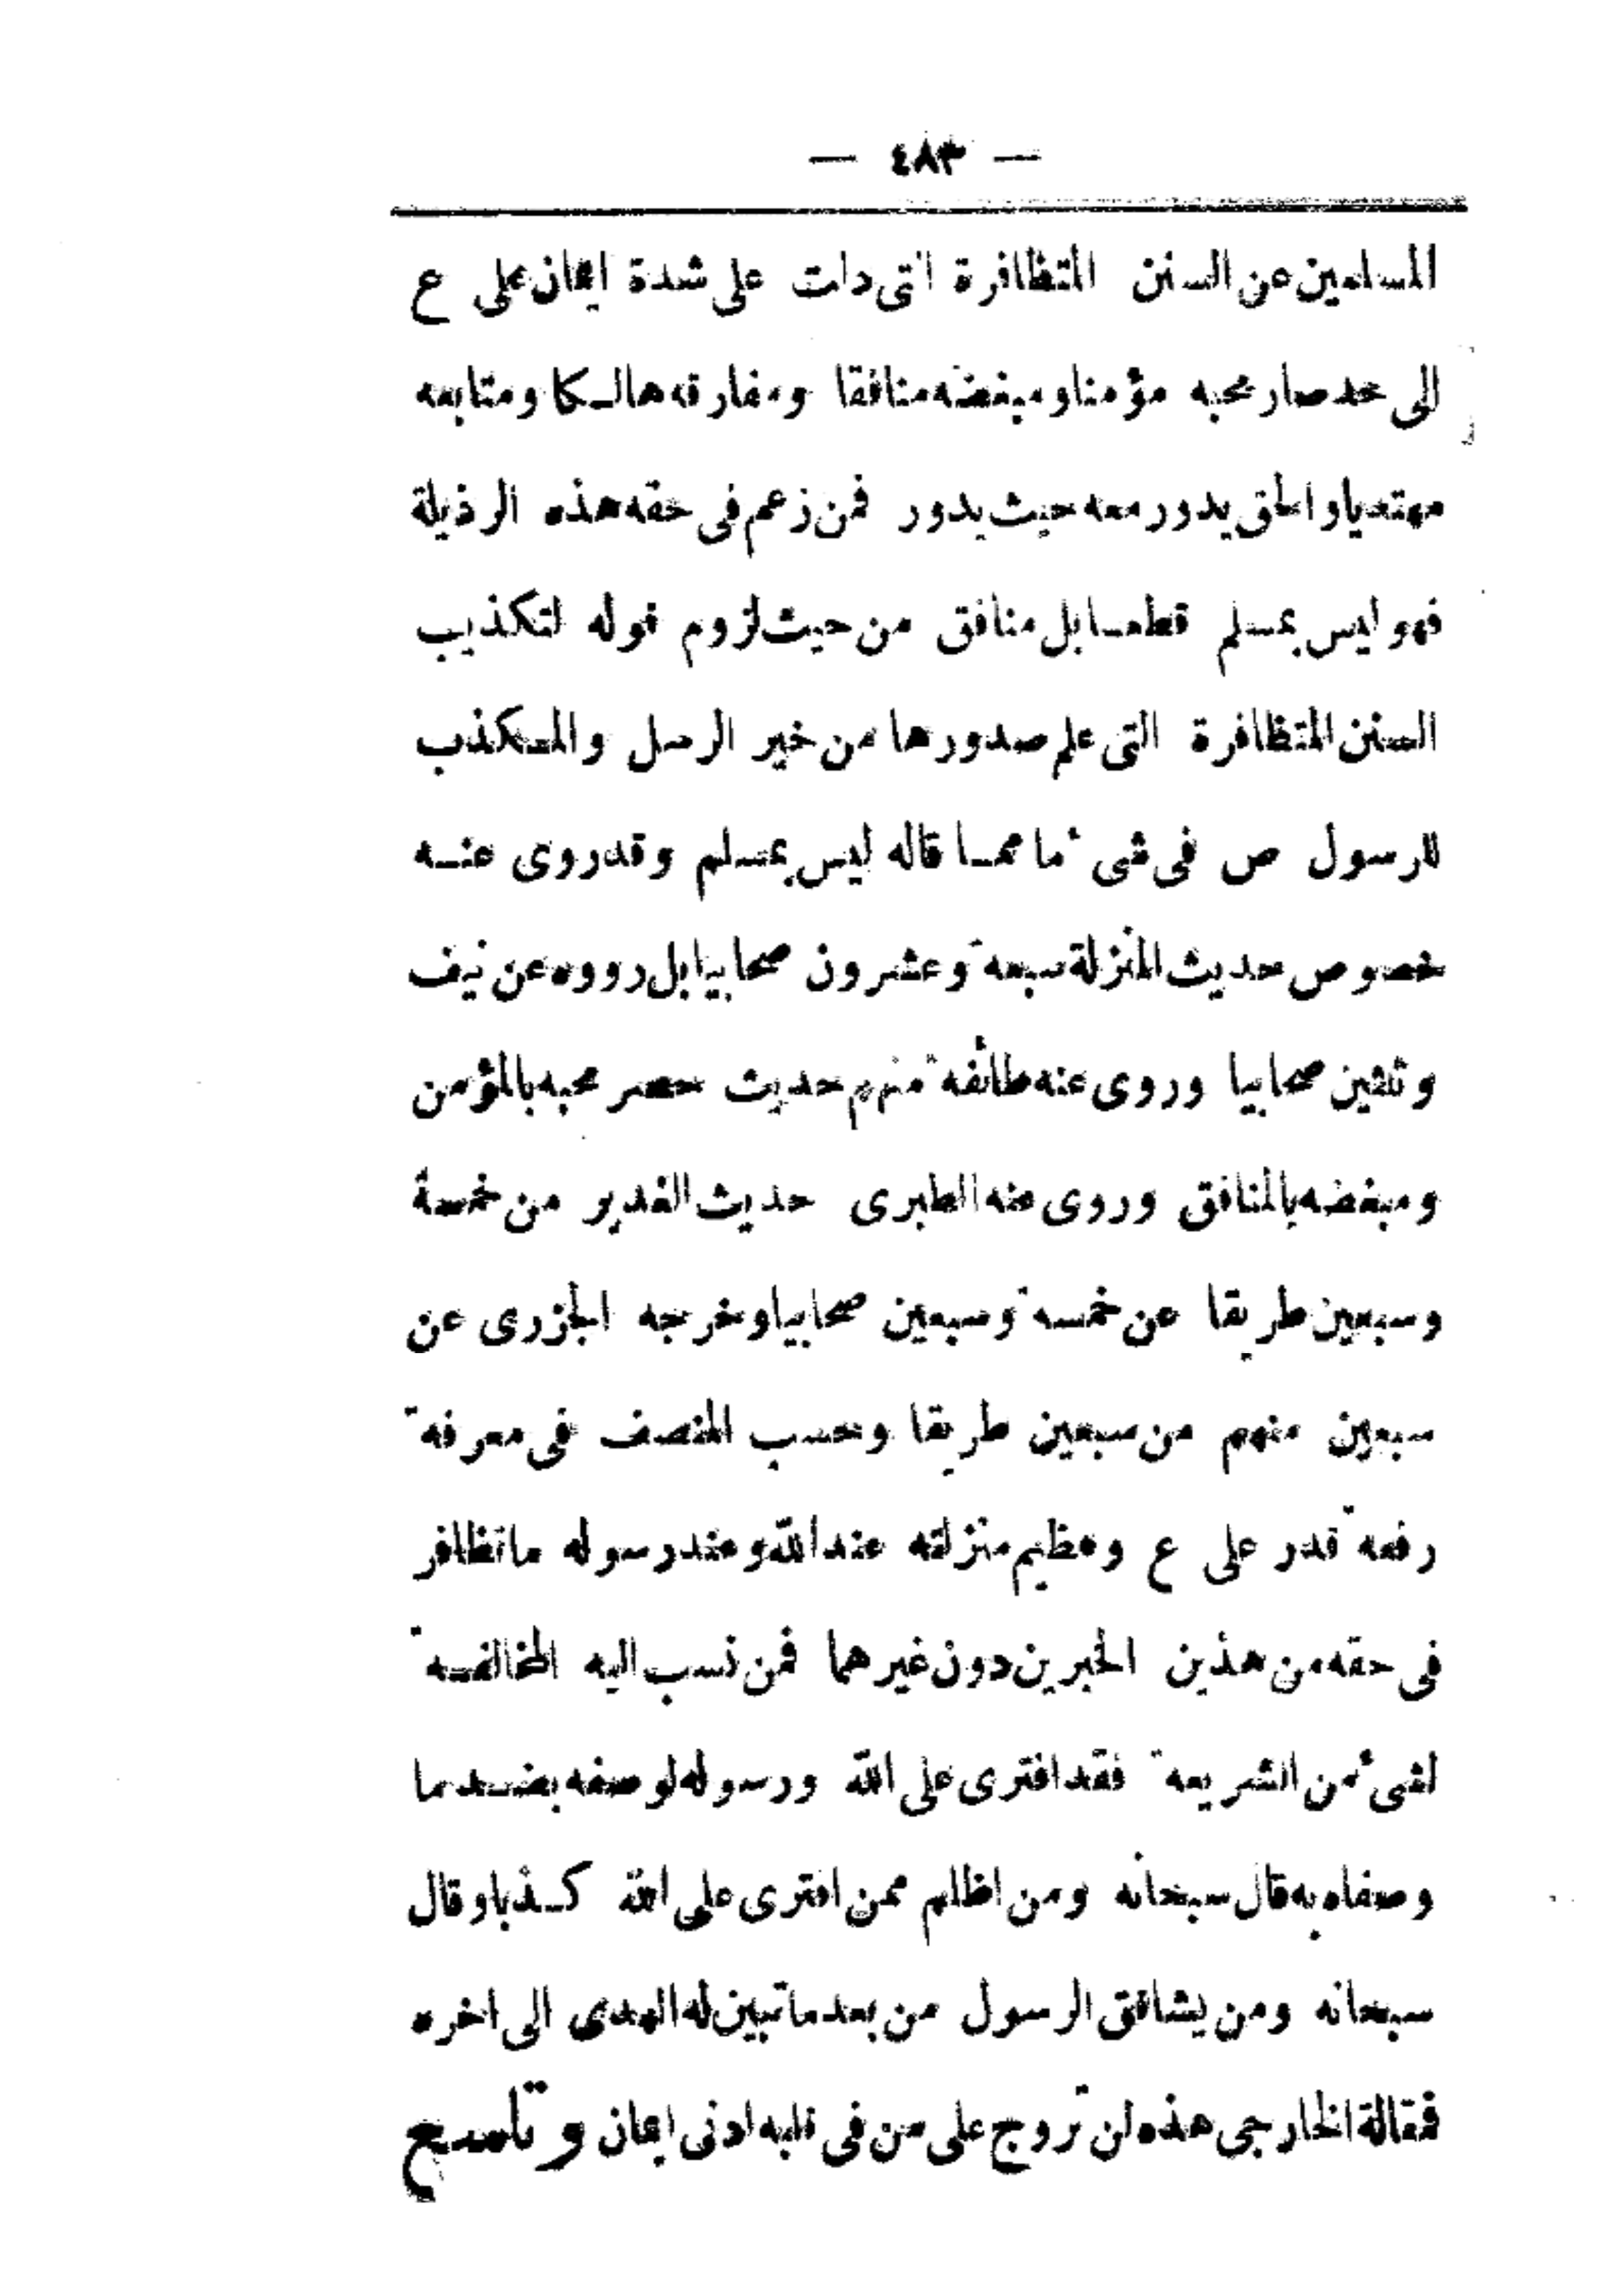 — ٤٨٣ —
المسلمين عن السنن المتظافرة التى دلت على شدة ايمان على ع
الى حد صار محبه مؤمنا ومبغضه منافقا ومفارقه هالكا ومتابعه
مهتديا والحق يدور معه حيث يدور فمن زعم فى حقه هذه الرذيلة
فهو ليس بمسلم قطعا بل منافق من حيث لزوم قوله لتكذيب
السنن المتظافرة التى علم صدورها من خير الرسل والمكذب
للرسول ص فى شىء ما مما قاله ليس بمسلم وقد روى عنه
خصوص حديث المنزلة سبعة وعشرون صحابيا بل رووه عن نيف
وثلثين صحابيا وروى عنه طائفة منهم حديث حصر محبه بالمؤمن
ومبغضه بالمنافق وروى عنه الطبرى حديث الغدير من خمسة
وسبعين طريقا عن خمسة وسبعين صحابيا وخرجه الجزرى عن
سبعين منهم من سبعين طريقا وحسب المنصف فى معرفة
رفعة قدر على ع وعظيم منزلته عند الله وعند رسوله ما تظافر
فى حقه من هذين الخبرين دون غيرهما فمن نسب اليه المخالفة
لشىء من الشريعة فقد افترى على الله ورسوله لوصفه بضد ما
وصفاه به قال سبحانه ومن اظلم ممن افترى على الله كذبا وقال
سبحانه ومن يشاقق الرسول من بعد ما تبين له الهدى الى اخره
فمقالة الخارجى هذه لن تروج على من فى قلبه ادنى ايمان و